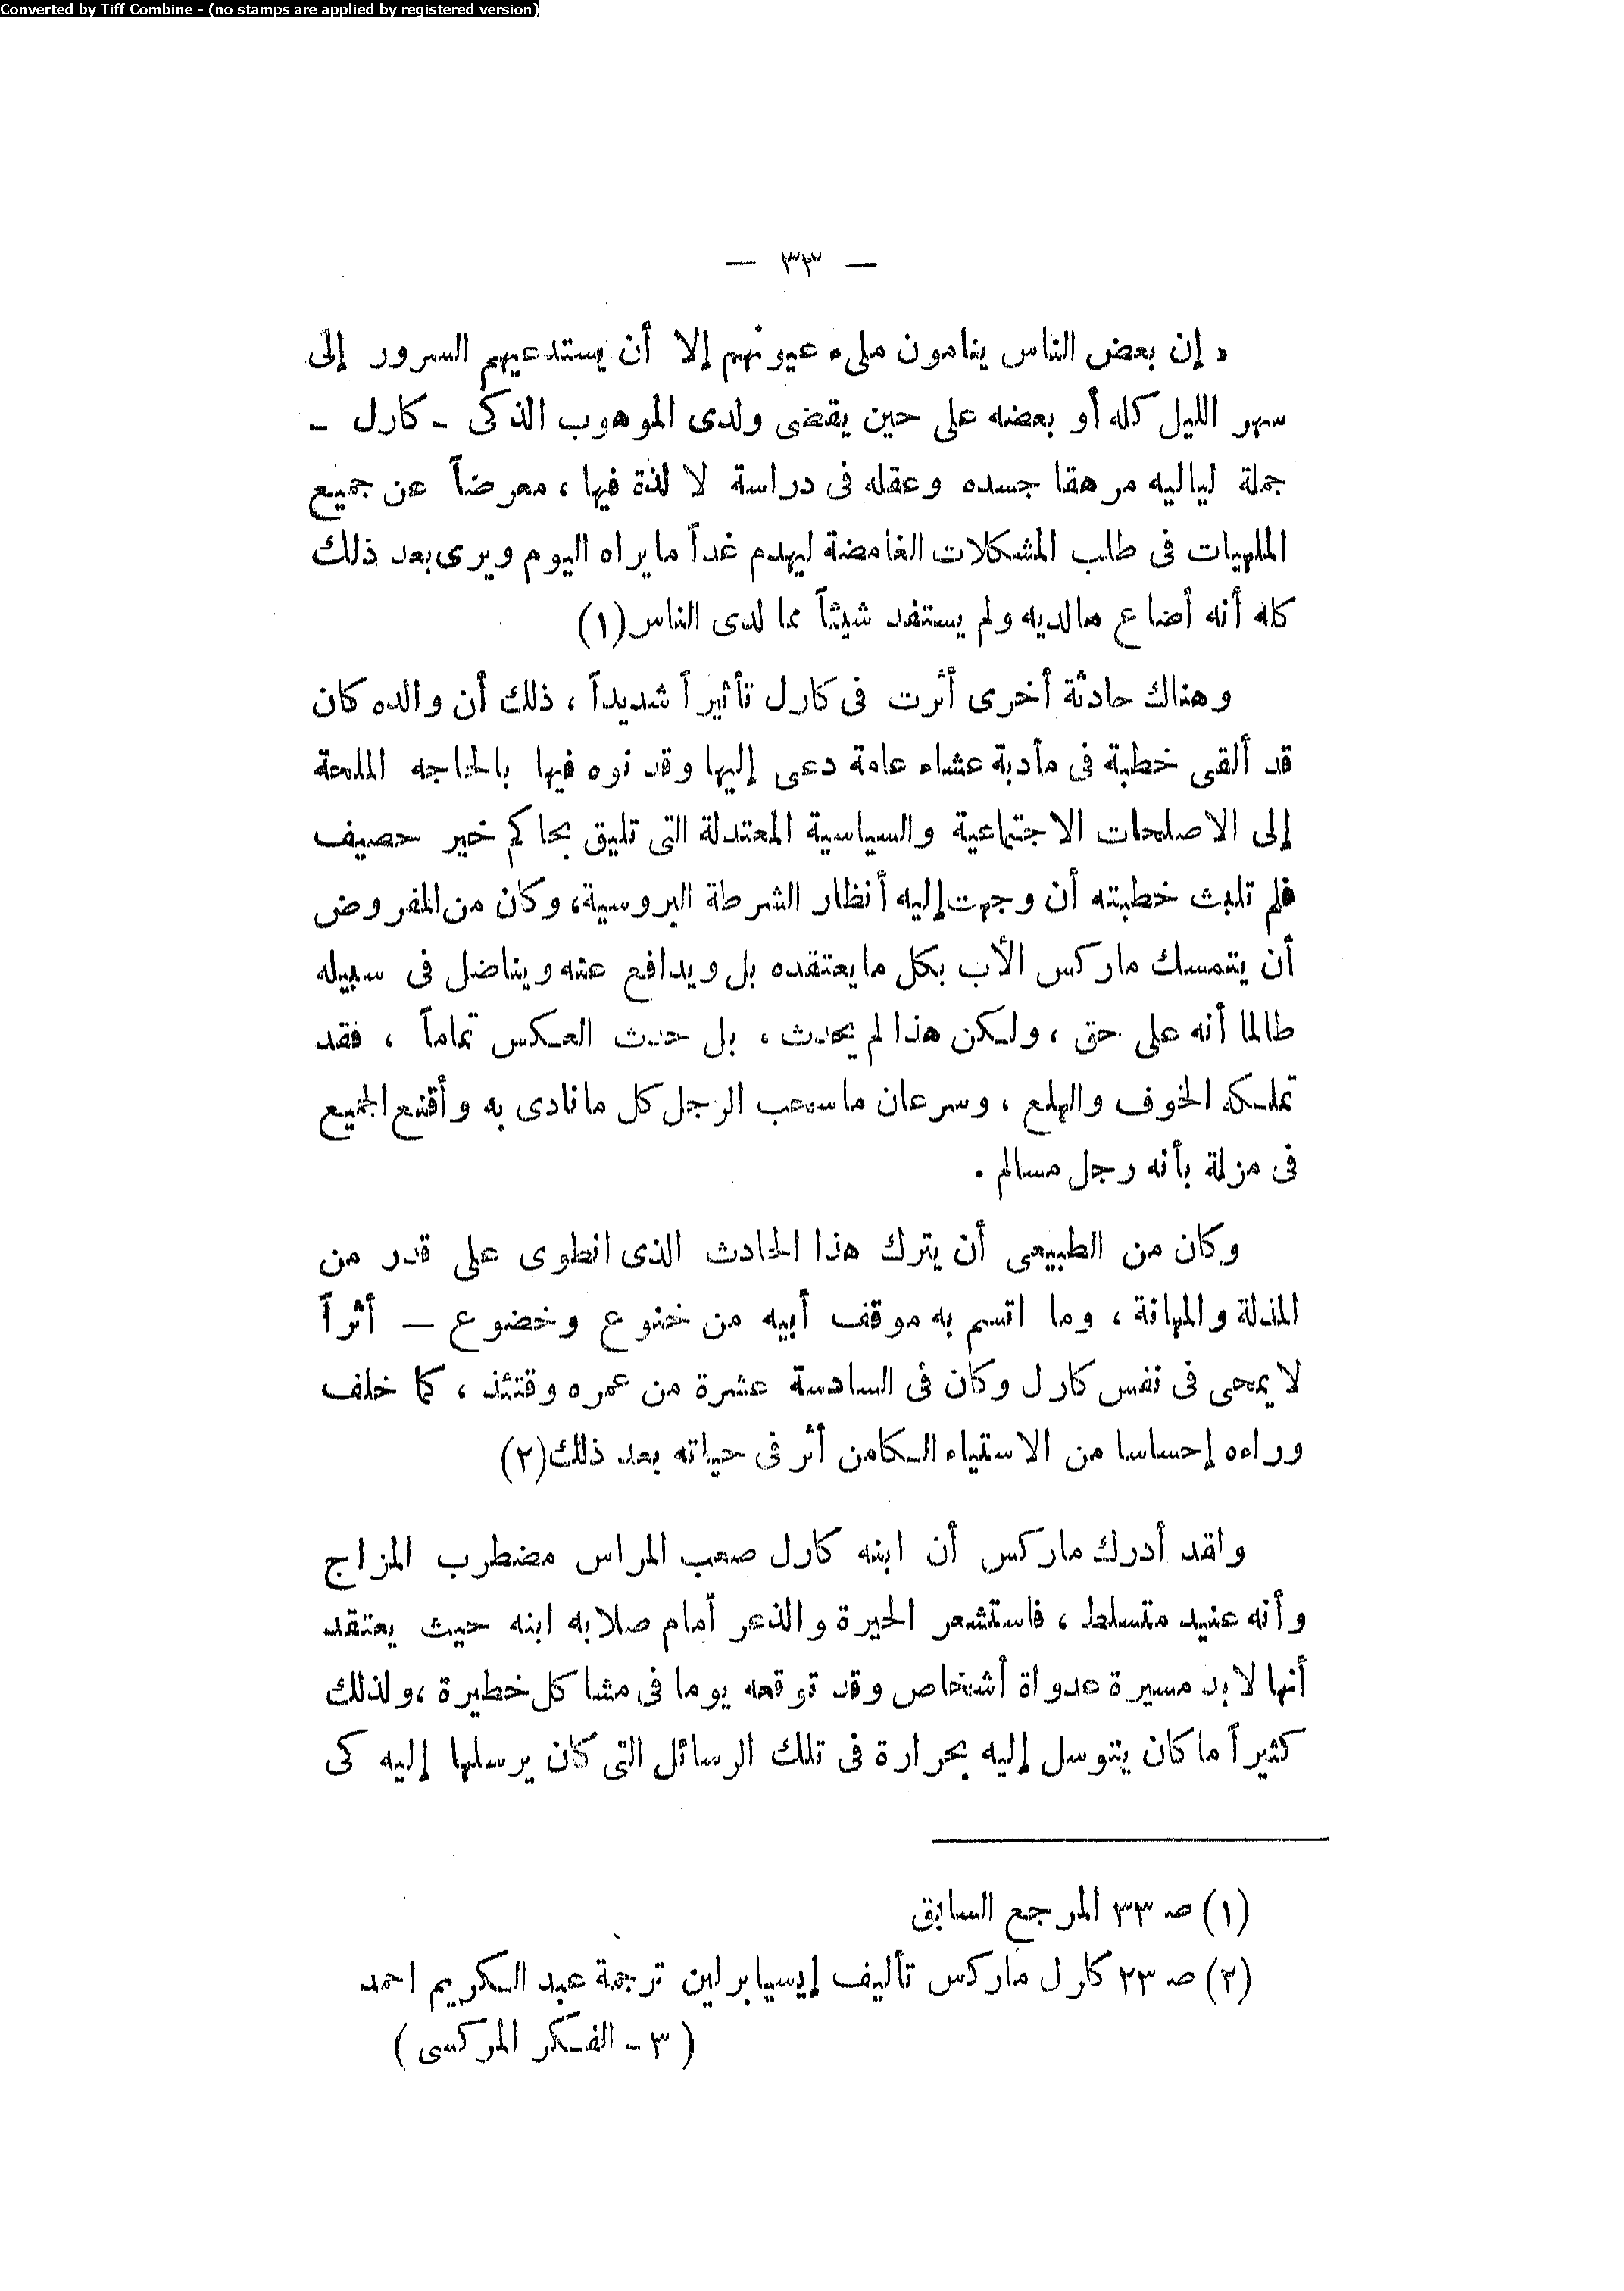 Converted by Tiff Combine - (no stamps are applied by registered version)
— ٣٣ —
« إن بعض الناس ينامون ملىء عيونهم إلا أن يستدعيهم السرور إلى
سهر الليل كله أو بعضه على حين يقضى ولدى الموهوب الذكى - كارل -
جملة لياليه مرهقا جسده وعقله فى دراسة لا لذة فيها ، معرضاً عن جميع
الملهيات فى طلب المشكلات الغامضة ليهدم غداً ما يراه اليوم ويرى بعد ذلك
كله أنه أضاع ما لديه ولم يستفد شيئاً مما لدى الناس (١)
وهناك حادثة أخرى أثرت فى كارل تأثيراً شديداً ، ذلك أن والده كان
قد ألقى خطبة فى مأدبة عشاء عامة دعى إليها وقد نوه فيها بالحاجه الملحة
إلى الاصلحات الاجتماعية والسياسية المعتدلة التى تليق بحاكم خير حصيف
فلم تلبث خطبته أن وجهت إليه أنظار الشرطة البروسية، وكان من المفروض
أن يتمسك ماركس الأب بكل ما يعتقده بل ويدافع عنه ويناضل فى سبيله
طالما أنه على حق ، ولكن هذا لم يحدث ، بل حدث العكس تماماً ، فقد
تملكه الخوف والهلع ، وسرعان ما سحب الرجل كل ما نادى به وأقنع الجميع
فى مزلة بأنه رجل مسالم .
وكان من الطبيعى أن يترك هذا الحادث الذى انطوى على قدر من
المذلة والمهانة ، وما اتسم به موقف أبيه من خنوع وخضوع — أثراً
لا يمحى فى نفس كارل وكان فى السادسة عشرة من عمره وقتئذ ، كما خلف
وراءه إحساسا من الاستياء الكامن أثر فى حياته بعد ذلك (٢)
واقد أدرك ماركس أن ابنه كارل صعب المراس مضطرب المزاج
وأنه عنيد متسلط ، فاستشعر الحيرة والذعر أمام صلابه ابنه حيث يعتقد
أنها لابد مسيرة عدواة أشخاص وقد توقعه يوما فى مشاكل خطيرة ، ولذلك
كثيراً ما كان يتوسل إليه بحرارة فى تلك الرسائل التى كان يرسلها إليه كى
(١) صـ ٣٣ المرجع السابق
(٢) صـ ٢٣ كارل ماركس تأليف إيسيا برلين ترجمة عبد الكريم احمد
( ٣ - الفكر المركسى )